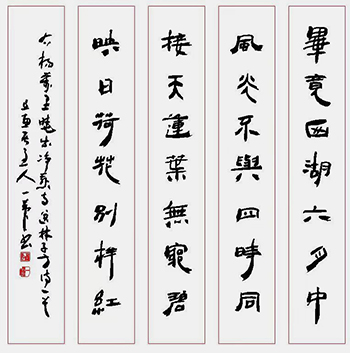 畢竟西湖六月中
風光不與四時同
接天蓮葉無窮碧
映日荷花別樣紅
右楊萬里曉出淨慈寺送林子方詩一首